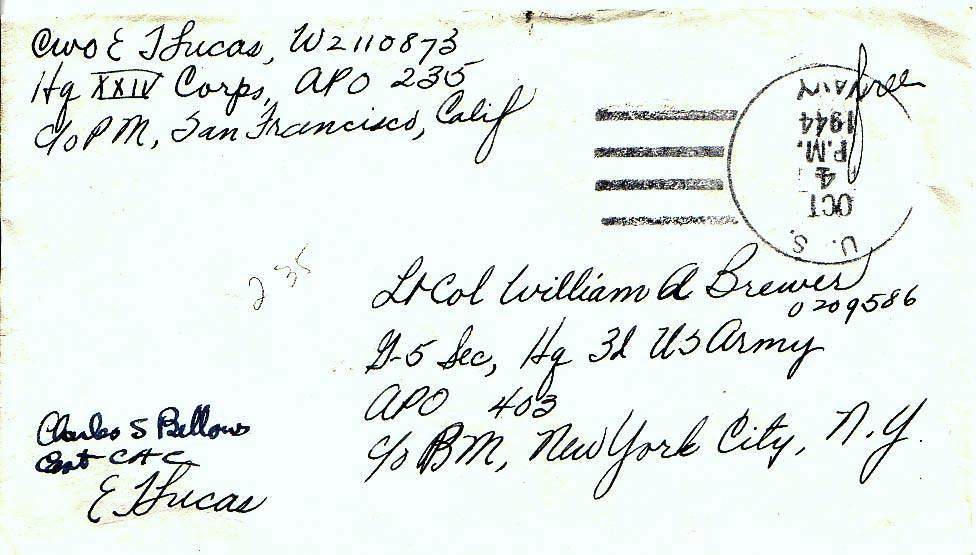 CWO E T Lucas, W2110873
Hq XXIV Corps, APO 235
c/o PM, San Francisco, Calif
free
U. S. NAVY
OCT
4
P.M.
1944
235
Lt Col William A Brewer
0209586
G-5 Sec, Hq 3d US Army
APO 403
c/o PM, New York City, N.Y.
Charles S Bellows
Capt CAC
E T Lucas